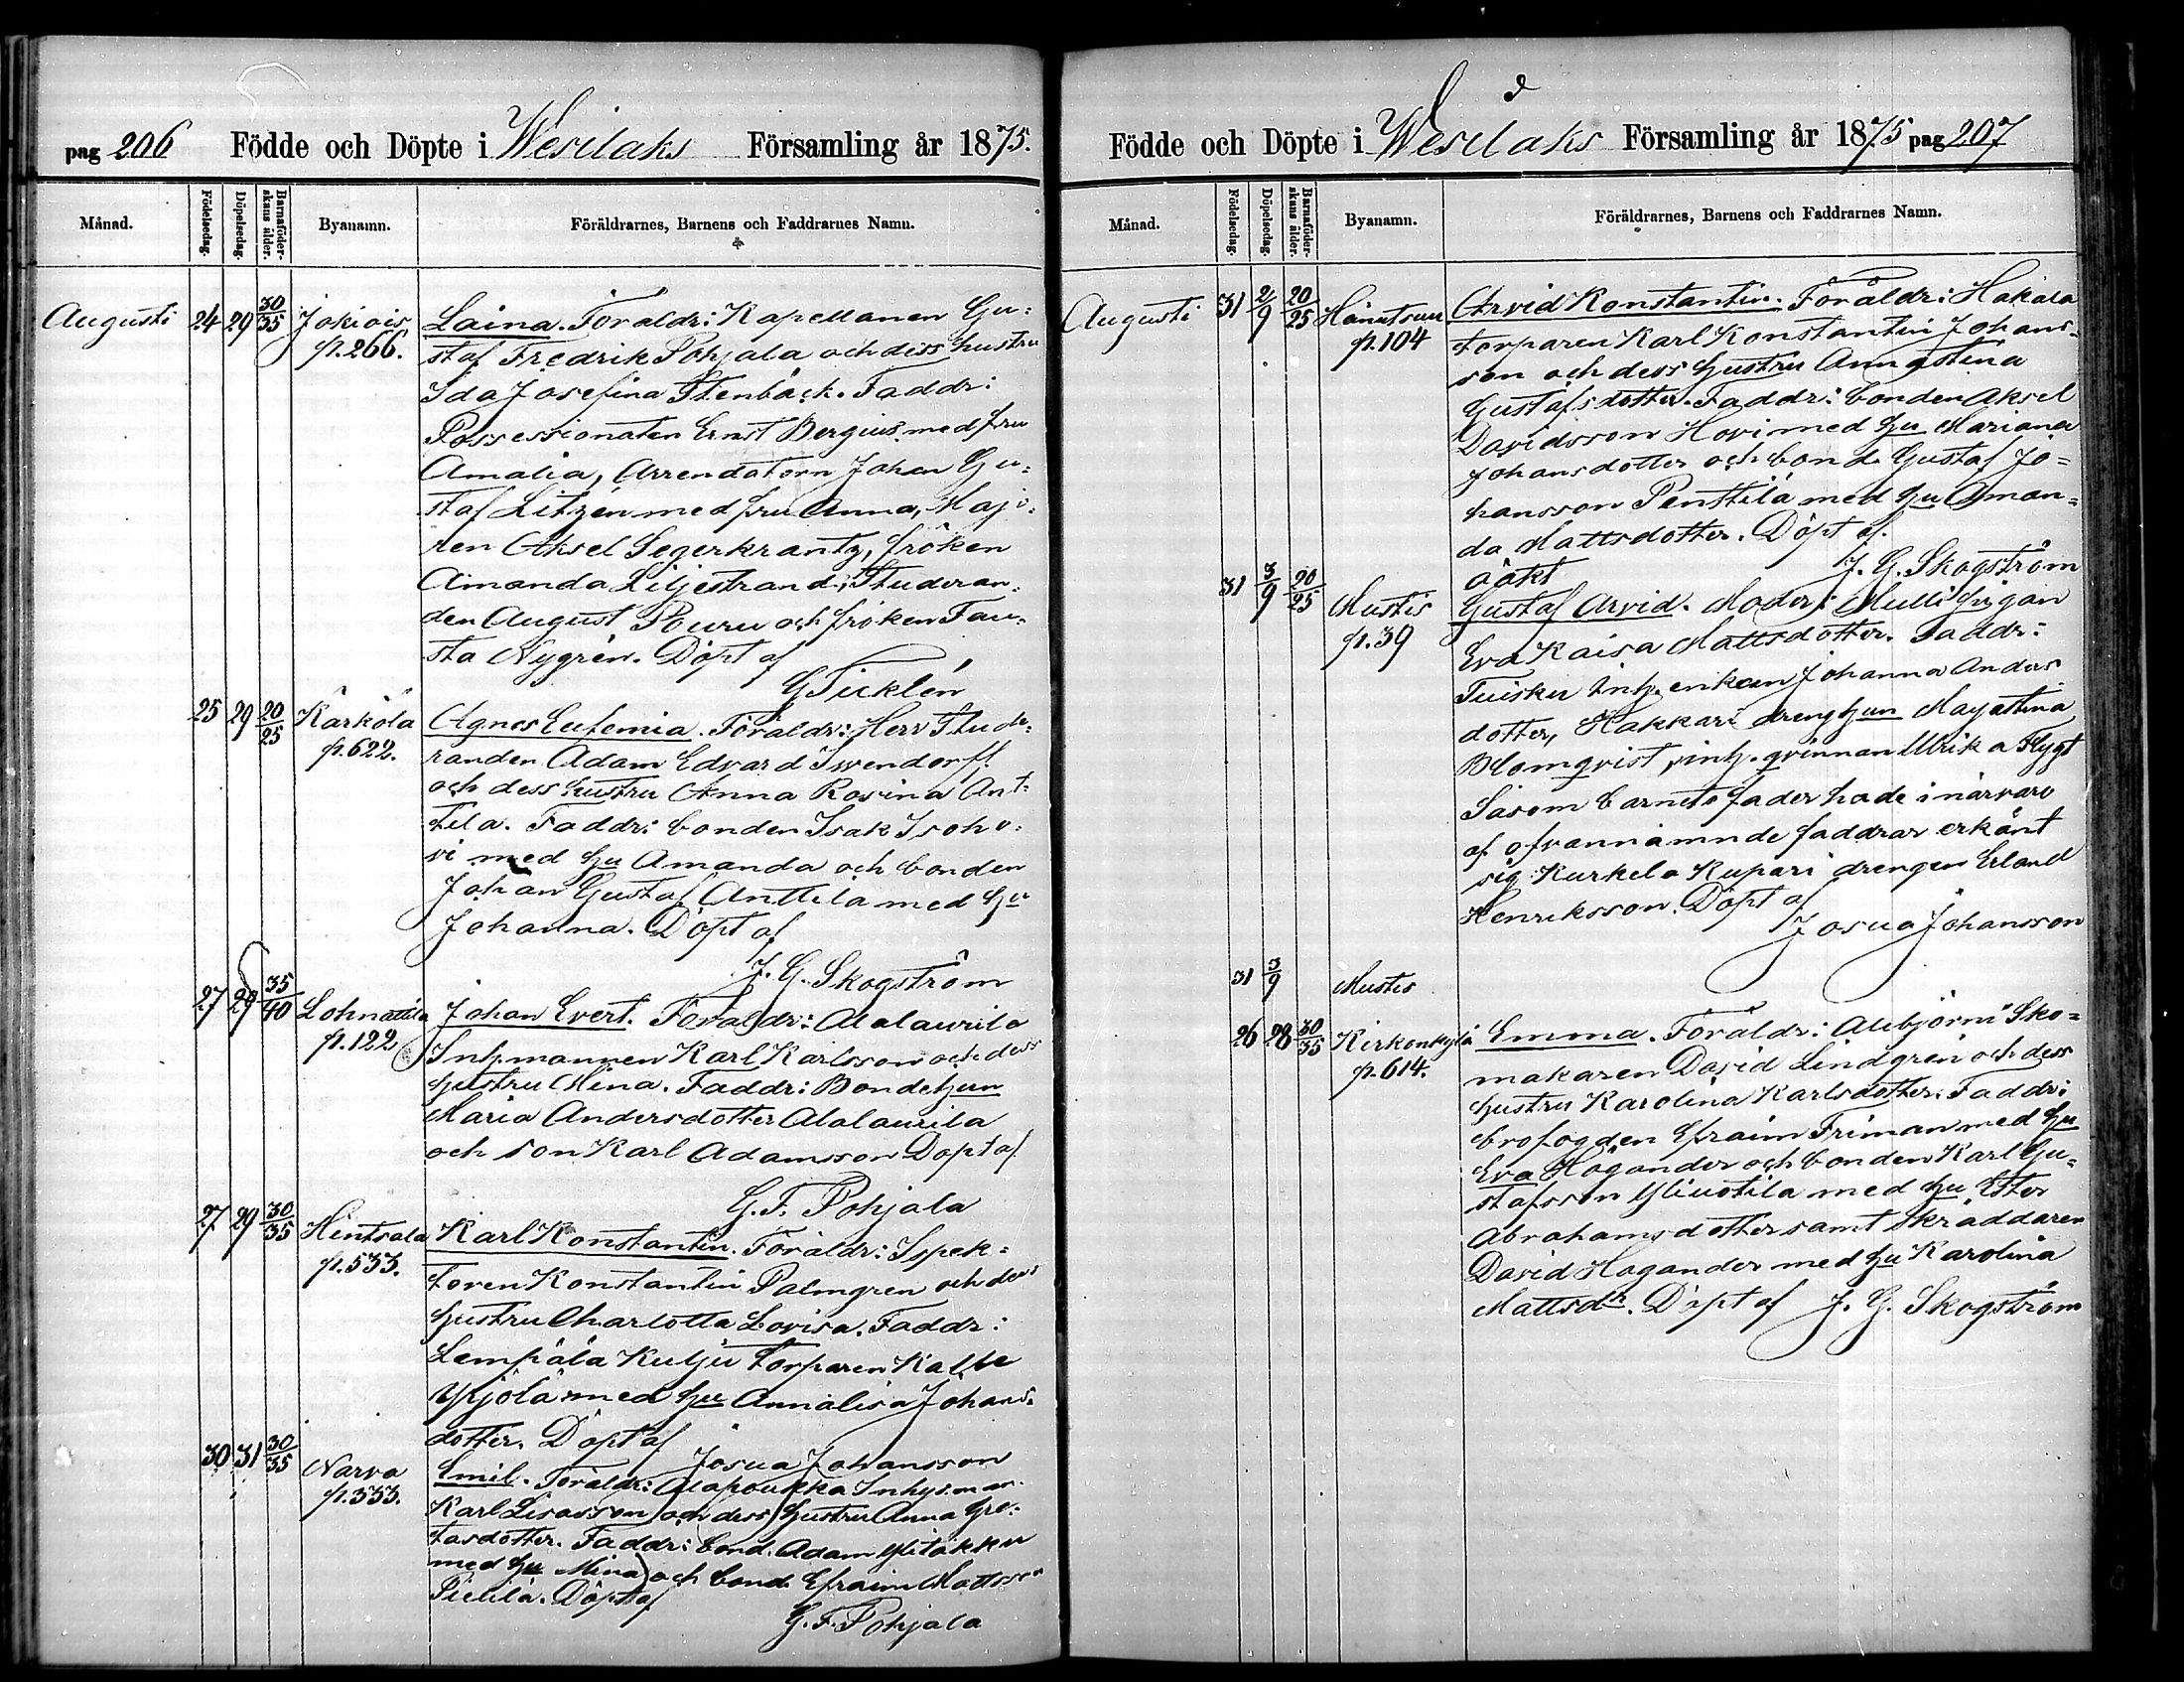 pag 206 Födde och Döpte i Wesilaks Församling år 1875.
Månad. Födelsedag. Döpelsedag. Barnaföderskans ålder. Byanamn. Föräldrarnes, Barnens och Faddrarnes Namn.
Augusti 24 29 30/35 Jokiois p.266. Laina. Föräldr: Kapellanen Gu=
staf Fredrik Pohjala och dess hustru
Ida Josefina Stenbäck. Faddr:
Possessionaten Ernst Bergius med fru
Amalia, Arrendatorn Johan Gu=
staf Litzén med fru Anna, Majo=
ren Aksel Segerkrantz, fröken
Amanda Liljestrand, Studeran=
den August Pouru och fröken Fau=
sta Nygrén. Döpt af
G Ticklén
25 29 20/25 Karkola p.622. Agnes Eufemia. Föräldr: Herr Stude=
randen Adam Edvard Swendorff
och dess hustru Anna Rosina Ant=
tila. Faddr: bonden Isak Isoho=
vi med hu Amanda och bonden
Johan Gustaf Anttila med hu
Johanna. Döpt af
J. G. Skogström
27 29 35/40 Lohnattila p.122 Johan Evert. Föräldr: Alalaurila
Inh. mannen Karl Karlsson och dess
hustru Mina. Faddr: Bondehun
Maria Andersdotter Alalaurila
och son Karl Adamsson Döpt af
G. F. Pohjala
27 29 30/35 Hentsala p.533. Karl Konstantin. Föräldr: Ispek=
toren Konstantin Palmgren och dess
hustru Charlotta Lovisa. Faddr:
Lempäälä Kulju torparen Kalle
Yljölä med hu Annalisa Johans=
dotter. Döpt af
Josua Johansson
30 31 30/35 Narva p.333. Emil. Föräldr: Alapoukka Inhys.man
Karl Lisasson och dess hustru Anna Gre=
tasdotter. Faddr: bond. Adam Ylitakku
med hu Mina och bond. Efraim Mattsson
Pietilä. Döpt af
G. F. Pohjala
Födde och Döpte i Wesilaks Församling år 1875 pag 207
Månad. Födelsedag. Döpelsedag. Barnaföderskans ålder. Byanamn. Föräldrarnes, Barnens och Faddrarnes Namn.
Augusti 31 2/9 20/25 p.104 Arvid Konstantin. Föräldr: Hakala
torparen Karl Konstantin Johans=
son och dess hustru Annastina
Gustafsdotter. Faddr: bonden Aksel
Davidsson Hovi med hu Mariana
Johansdotter och bond. Gustaf Jo=
hansson Penttilä med hu Aman=
da Mattsdotter. Döpt af
J. G. Skogström
31 3/9 20/25 Mustis p.39 oäkt
Gustaf Arvid. Moder: Mulli pigan
Eva Kaisa Mattsdotter. Faddr:
Tuisku inh. enkan Johanna Anders
dotter, Hakkari drenghun Majastina
Blomqvist, inh. qvinnan Ulrika Flygt
Såsom barnets fader hade i närvaro
af ofvannämnde faddrar erkänt
sig Kurkela Kupari drengen Erland
Henriksson. Döpt af
Josua Johansson
31 3/9 Mustis
26 28 30/35 Kirkonkylä p.614. Emma. Föräldr: Alibjörni Sko=
makaren David Lindgren och dess
hustru Karolina Karlsdotter. Faddr:
brofogden Efraim Friman med hu
Eva Högander och bonden Karl Gu=
stafsson Yliuotila med hu Ester
Abrahamsdotter samt skräddaren
David Hagander med hu Karolina
Mattsdr. Döpt af J. G. Skogström